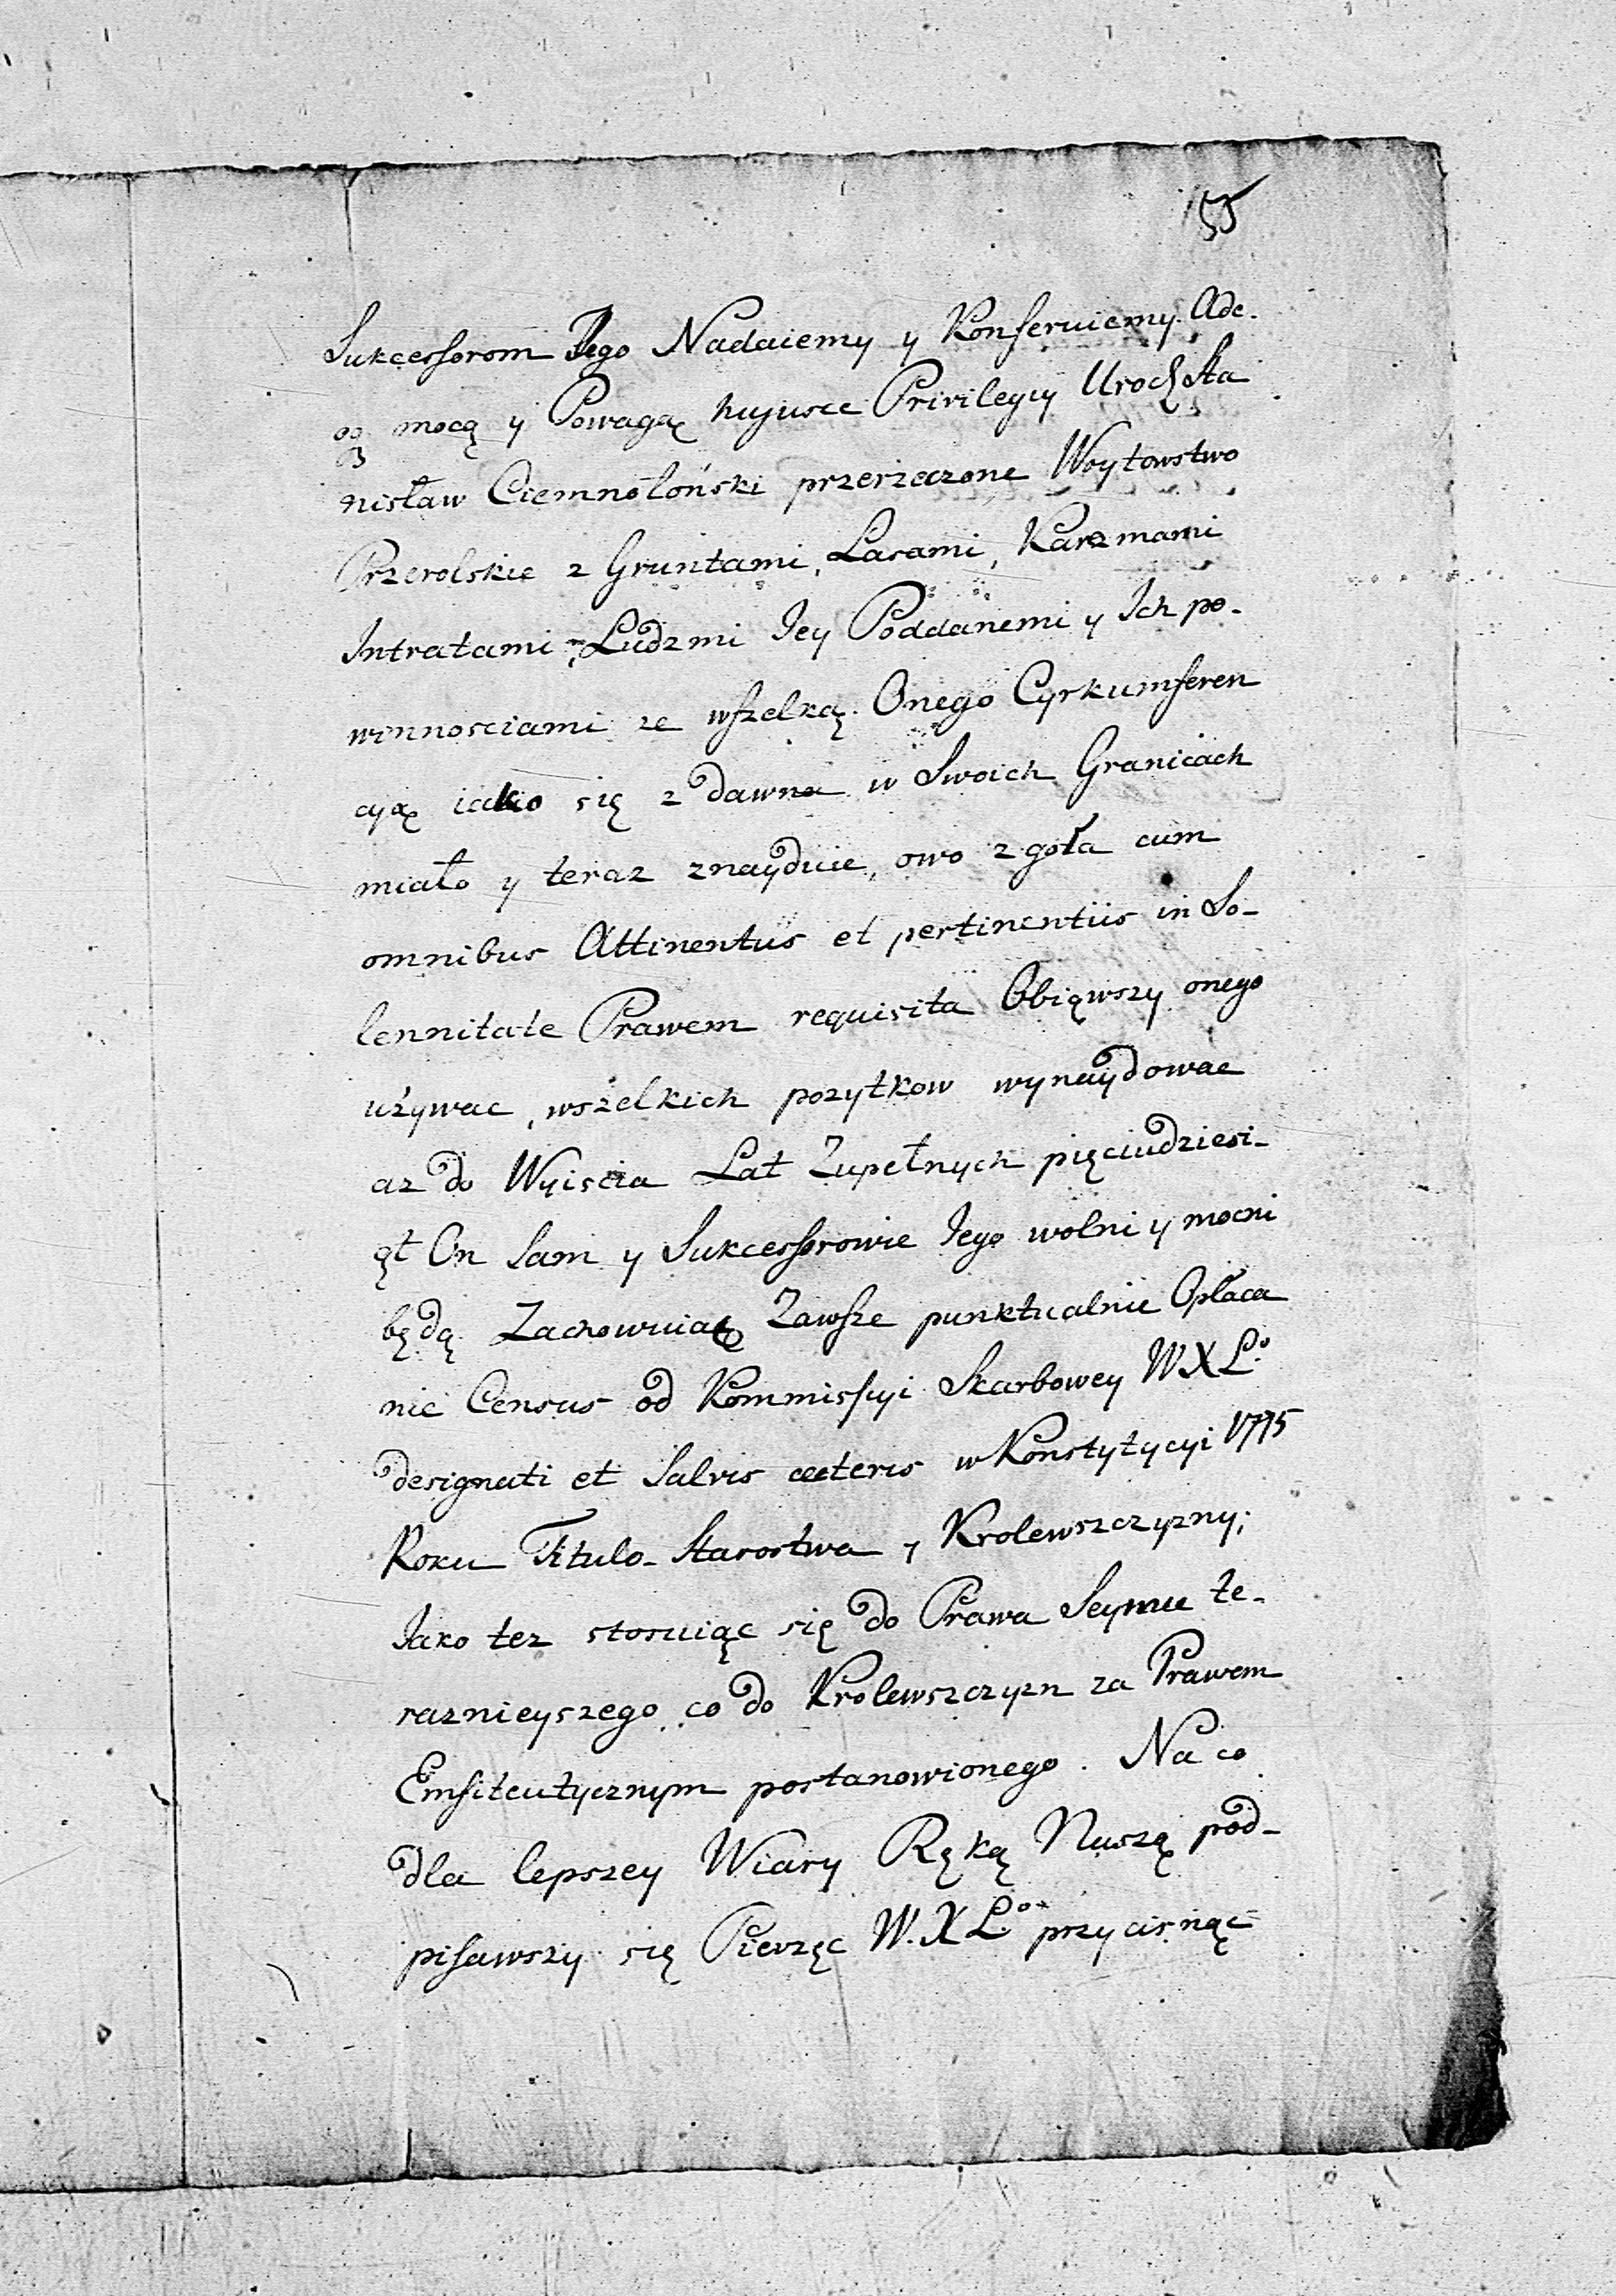 155
Sukcessorom Jego Nadaiemy y Konferuiemy. Ade.
oq mocą y Powagą hujusce Privilegij Urodz Sta
nisław Ciemnołoński przerzeczone Woytowstwo
Przerolskie z Gruntami, Lasami, Karzmami
Intratami, Ludzmi Jey Poddanemi y Ich po-
winnosciami ze wszelką Onego Cyrkumferen
cyą iako się z dawna w Swoich Granicach
miało y teraz znayduie, owo zgoła cum
omnibus Attinentiis et pertinentiis in So-
lennitate Prawem requisita Obiąwszy onego
używac, wszelkich pozytkow wynaydowac
az do Wyiscia Lat Zupełnych pięciudziesi-
ąt On Sam y Sukcessorowie Jego wolni y mocni
będą Zachowuiąc Zawsze punktualnie Opłaca
nie Census od Kommissyi Skarbowey W X L.º
designati et Salvis cæteris w Konstytycyi 1775
Roku Titulo Starostwa y Krolewszczyzny;
Jako tez stosuiąc się do Prawa Seymu te-
raznieyszego co do Krolewszczyzn za Prawem
Emfiteutycznym postanowionego. Na co
dla lepszey Wiary Ręką Naszą pod-
pisawszy się Pieczęc W. X L.º przycisnąc